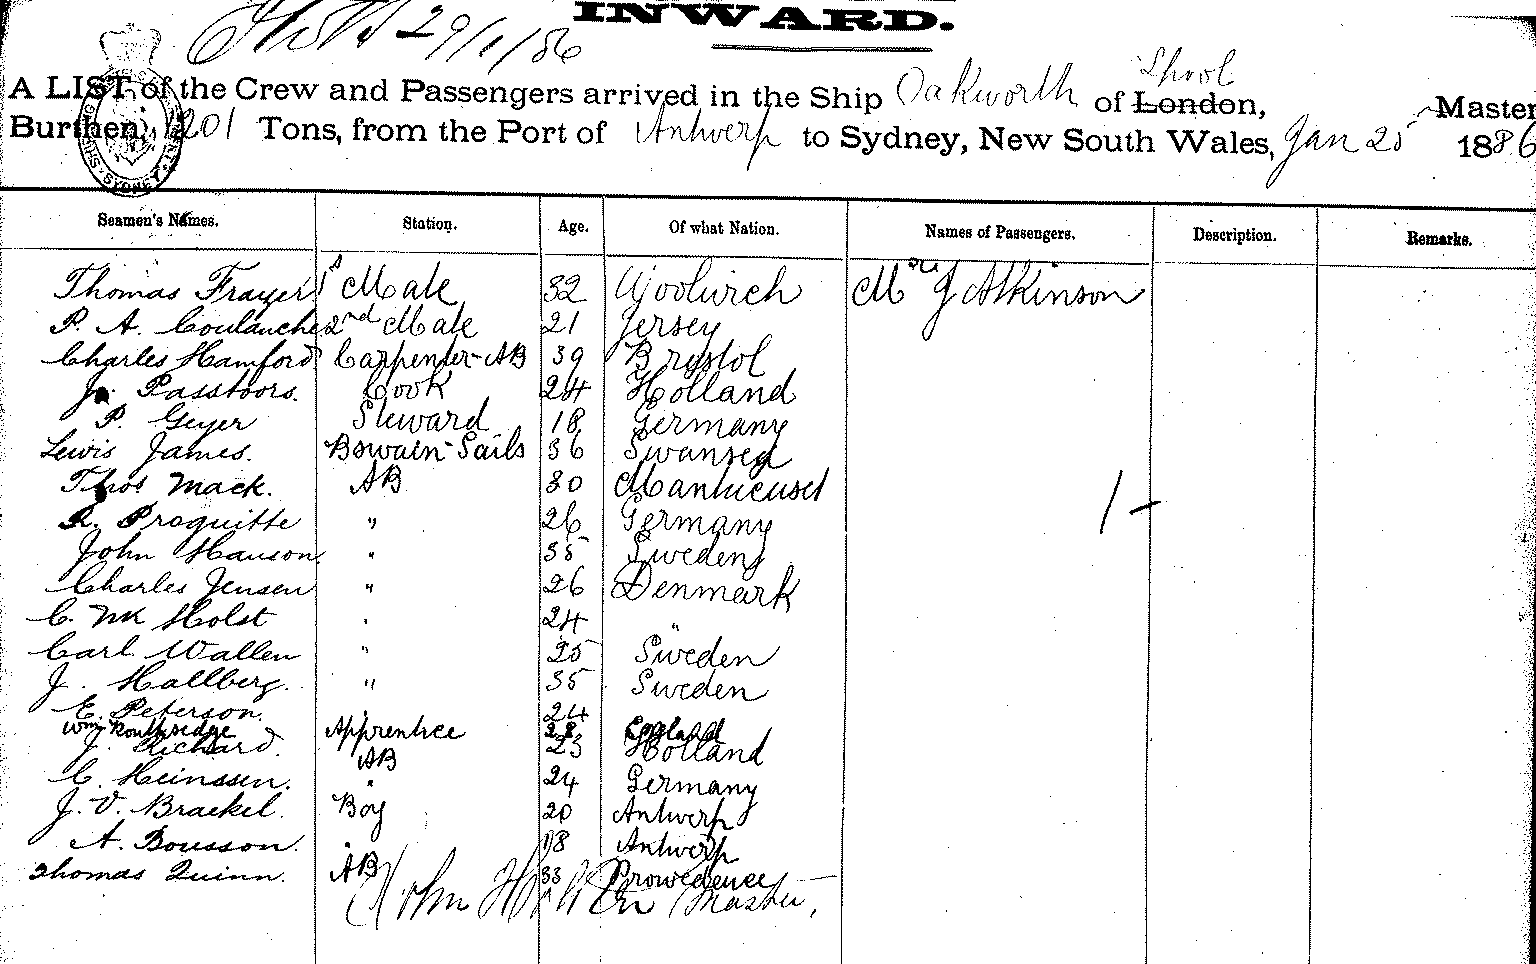 INWARD.
29/1/86
A LIST of the Crew and Passengers arrived in the Ship Oakworth of London, Master
Burthen, 1201 Tons, from the Port of Antwerp to Sydney, New South Wales, Jan 25 1886
Seamen's Names. Station. Age. Of what Nation. Names of Passengers. Description. Remarks.
Thomas Frayer 1s Mate 32 Woolwich J Atkinson
P. A. Coulanche 2nd Mate 21 Jersey
Charles Hamford Carpenter-AB 39 Bristol
Passtoors. Cook 24 Holland
P. Geyer Steward 18 Germany
Lewis James. Bswain-Sails 36 Swansea
Thos Mack. AB 30
R. Proquitte " 26 Germany
John Hanson " 35 Sweden
Charles Jensen " 26 Denmark
C. Holst " 24 "
Carl Wallen " 25 Sweden
J. Hallberg. " 35 Sweden
E. Peterson. 24
Wm Apprentice England
J. Richard. AB 23 Holland
C. Heinssen. " 24 Germany
J. V. Brackel. Boy 20 Antwerp
A. Bousson. " 18 Antwerp
Thomas Quinn. AB 33 Prowedence
John Master,